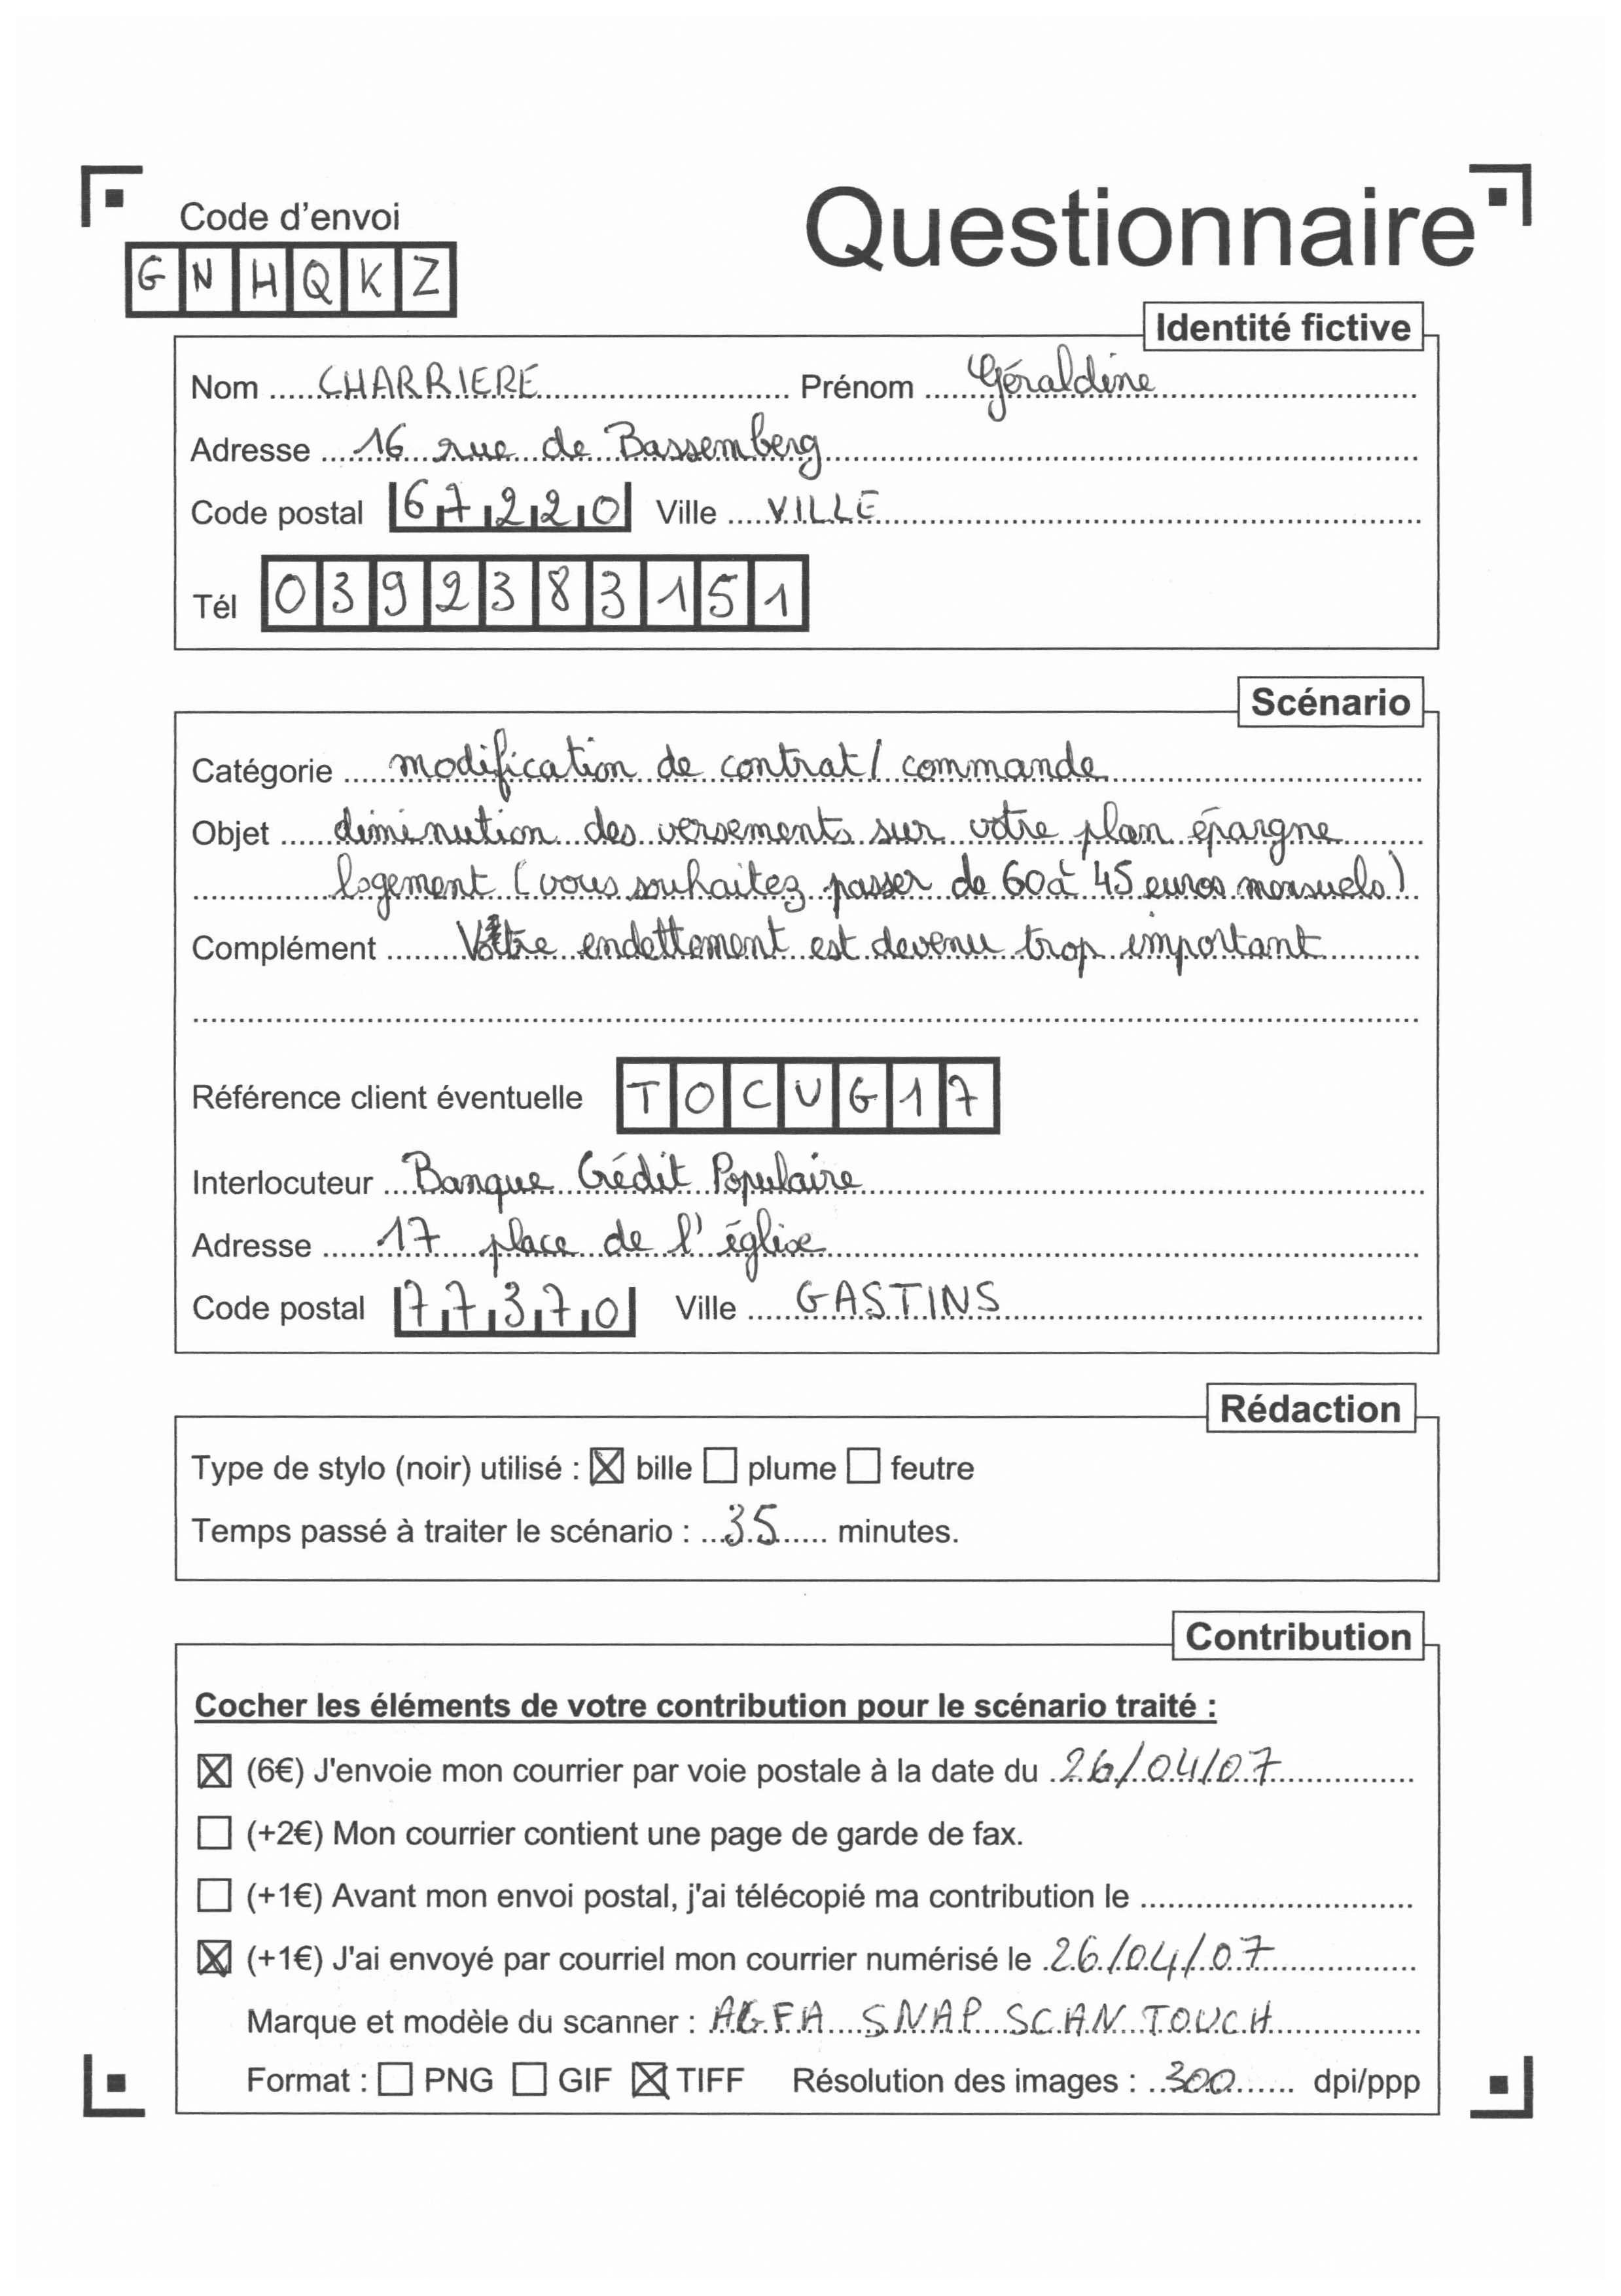 Code d'envoi
Questionnaire
GNHQKZ
Identité fictive
Nom CHARRIERE Prénom Géraldine
Adresse 16 rue de Bassemberg
Code postal 67220 Ville VILLE
Tél 0392383151
Scénario
Catégorie modification de contrat / commande
Objet diminution des versements sur votre plan épargne
logement (vous souhaitez passer de 60 à 45 euros mensuels)
Complément Votre endettement est devenu trop important
Référence client éventuelle TOCUG17
Interlocuteur Banque Crédit Populaire
Adresse 17 place de l'église
Code postal 77370 Ville GASTINS
Rédaction
Type de stylo (noir) utilisé : ☒ bille ☐ plume ☐ feutre
Temps passé à traiter le scénario : 35 minutes.
Contribution
Cocher les éléments de votre contribution pour le scénario traité :
☒ (6€) J'envoie mon courrier par voie postale à la date du 26/04/07
☐ (+2€) Mon courrier contient une page de garde de fax.
☐ (+1€) Avant mon envoi postal, j'ai télécopié ma contribution le
☒ (+1€) J'ai envoyé par courriel mon courrier numérisé le 26/04/07
Marque et modèle du scanner : AGFA SNAP SCAN TOUCH
Format : ☐ PNG ☐ GIF ☒ TIFF Résolution des images : 300 dpi/ppp